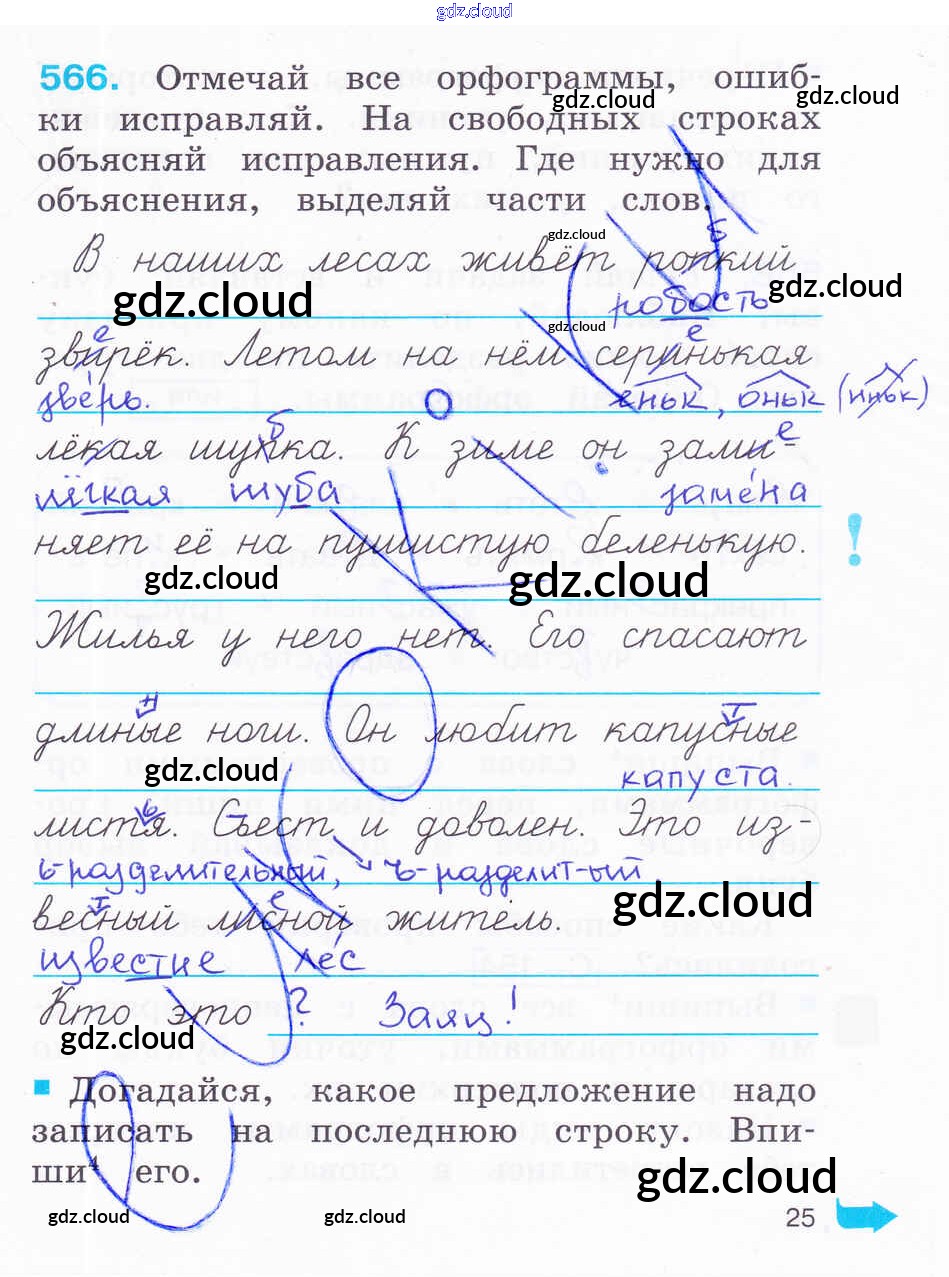 gdz.cloud
566. Отмечай все орфограммы, ошиб-
gdz.cloud gdz.cloud
ки исправляй. На свободных строках
объясняй исправления. Где нужно для
объяснения, выделяй части слов.
gdz.cloud б
В наших лесах живёт попкий
gdz.cloud gdz.cloud
робость
gdz.cloud
е е
звирёк. Летом на нём серинькая
зверь. еньк, оньк (иньк)
б е
лёкая шупка. К зиме он зами-
лёгкая шуба замена
няет её на пушистую беленькую. !
gdz.cloud gdz.cloud
Жилья у него нет. Его спасают
н т
длиные ноги. Он любит капусные
gdz.cloud капуста.
ь
листя. Съест и доволен. Это из-
ь-разделительный, ъ-разделит-ый
т е gdz.cloud
весный лисной житель.
известие лес
Кто это ? Заяц!
gdz.cloud
Догадайся, какое предложение надо
записать на последнюю строку. Впи-
ши⁴ его.
gdz.cloud
gdz.cloud gdz.cloud 25